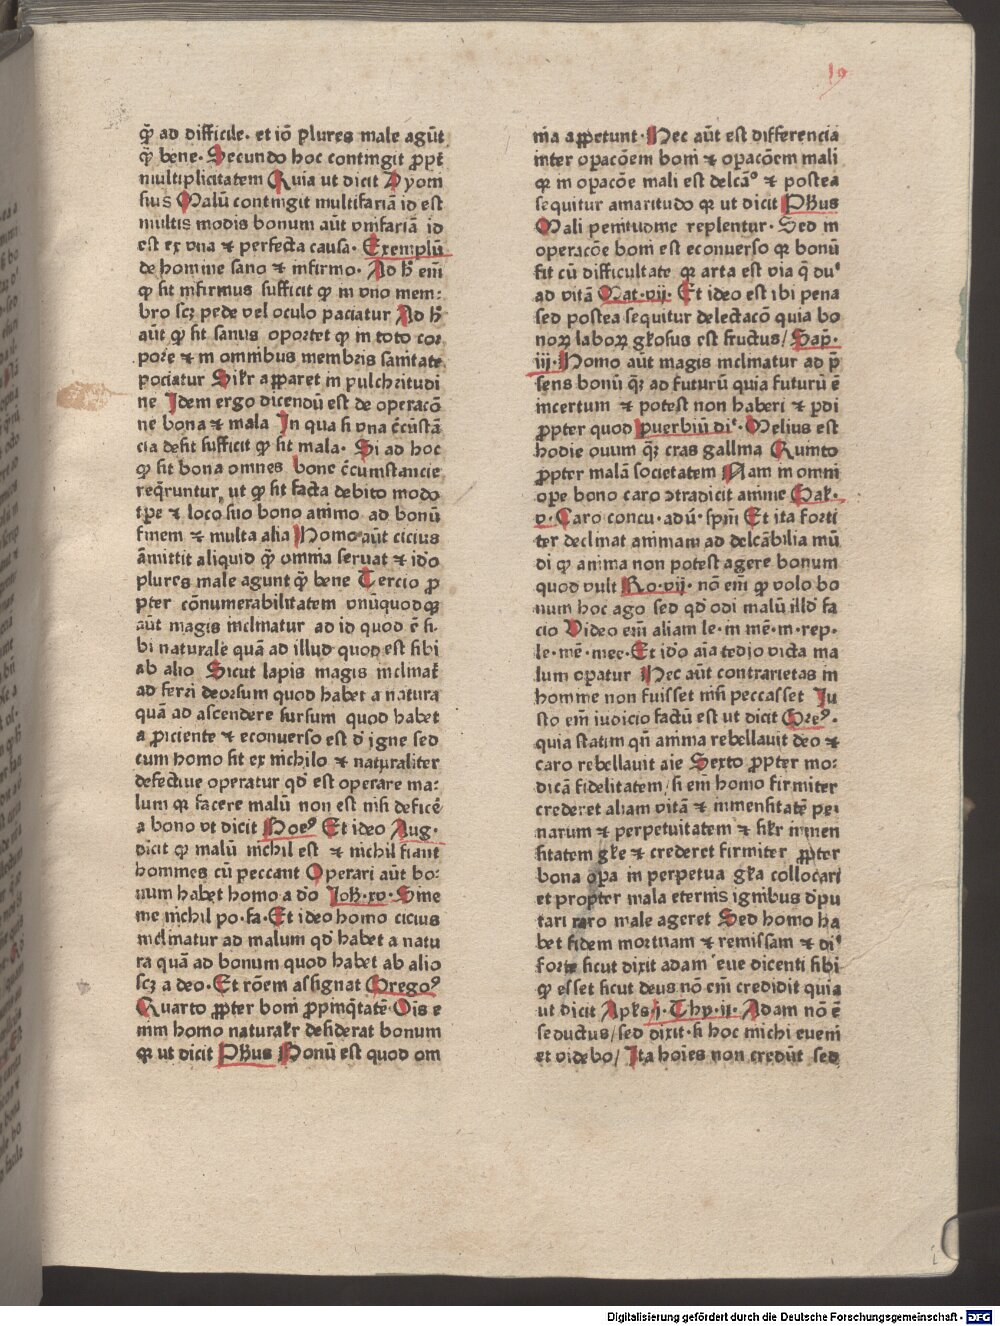 19
q̄ ad difficile. et iō plures male agūt
q̄ bene. Secundo hoc contingit ꝓpt̄
multiplicitatem Quia ut dicit Dyoni
sius Malū contingit multifariā id est
multis modis bonum aūt vnifariā id
est ex vna ⁊ perfecta causa. Exemplū
de homine sano ⁊ infirmo. Ad hͨ eni͞
ꝙ sit infirmus sufficit ꝙ in vno mem:
bro scꝫ pede vel oculo paciatur Ad hͨ
aūt ꝙ sit sanus oportet ꝙ in toto cor
pore ⁊ in omnibus membris sanitate
pociatur Silr apparet in pulchritudi
ne Idem ergo dicendū est de operacō
ne bona ⁊ mala In qua si vna c̄cūstā
cia desit sufficit ꝙ sit mala. Si ad hoc
ꝙ sit bona omnes bone c̄cumstancie
req̄runtur, ut ꝙ sit facta debito modo
tꝑe ⁊ loco suo bono animo ad bonū
finem ⁊ multa alia Homo aūt cicius
āmittit aliquid q̄ omnia seruat ⁊ idō
plures male agunt q̄ bene Tercio ꝓ
pter cōnumerabilitatem vnūquodqꝫ
aūt magis inclinatur ad id quod ē si.
bi naturale quā ad illud quod est sibi
ab alio Sicut lapis magis inclinat̄
ad ferri deorsum quod habet a natura
quā ad ascendere sursum quod habet
a ꝓiciente ⁊ econuerso est d̄ igne sed
cum homo sit ex nichilo ⁊ naturaliter
defectiue operatur qd̄ est operare ma:
lum qꝛ facere malū non est nisi defice̅
a bono vt dicit Boeꝰ Et ideo Aug.
dicit ꝙ malū nichil est ⁊ nichil fiant
homines cū peccant Operari aūt bo:
num habet homo a dō Joh. xv. Sine
me nichil po. fa. Et ideo homo cicius
inclinatur ad malum qd̄ habet a natu
ra quā ad bonum quod habet ab alio
scꝫ a deo. Et rōem assignat Gregoꝰ
Quarto ꝓpter boni ꝓpinq̄tatē Oīs e
nim homo naturalr desiderat bonum
qꝛ ut dicit Phus Bonū est quod om
nia appetunt. Hec aūt est differencia
inter oꝑacōem boni ⁊ oꝑacōem mali
qꝛ in oꝑacōe mali est delcāo ⁊ postea
sequitur amaritudo qꝛ ut dicit Phus
Mali penitudine replentur. Sed in
operacōe boni est econuerso qꝛ bonū
fit cū difficultate qꝛ arta est via q̄ duͨ
ad vitā Mat. vij. Et ideo est ibi pena
sed postea sequitur delectacō quia bo
noꝝ laboꝝ gl̄osus est fructus/ Sap̄.
iij. Homo aūt magis inclinatur ad p̄
sens bonū qꝫ ad futurū quia futurū ē
incertum ⁊ potest non haberi ⁊ ꝑdi
ꝓpter quod ꝓuerbiū diͨ. Melius est
hodie ouum qꝫ cras gallina Quinto
ꝓpter malā societatem Nam in omni
oꝑe bono caro ꝯtradicit anime Gal̄.
v. Caro concu. adū. spm̄ Et ita forti
ter declinat animam ad delcābilia mū
di ꝙ anima non potest agere bonum
quod vult Ro. vij. nō eni͞ ꝙ volo bo
num hoc ago sed qd̄ odi malū illd̄ fa
cio Video eni͞ aliam le. in mē. m. rep.
le. mē. mee. Et idō aīa tedio victa ma
lum oꝑatur Hec aūt contrarietas in
homine non fuisset nisi peccasset Ju
sto eni͞ iudicio factū est ut dicit Greꝰ.
quia statim qn̄ anima rebellauit deo ⁊
caro rebellauit aīe Sexto ꝓpter mo:
dicā fidelitatem/ si eni͞ homo firmiter
crederet aliam vitā ⁊ inmensitatē pe.
narum ⁊ perpetuitatem ⁊ silr inmen
sitatem gl̄e ⁊ crederet firmiter ꝓpter
bona oꝑa in perpetua gl̄a collocari
et propter mala eternis ignibus d̄pu
tari raro male ageret Sed homo ha
bet fidem mortuam ⁊ remissam ⁊ diͨ
forte sicut dixit adam eue dicenti sibi
ꝙ esset sicut deus nō eni͞ credidit quia
ut dicit Apl̄s j. Thy. ij. Adam nō ē
seductus/ sed dixit. si hoc michi eueni
et videbo/ Ita hoīes non credūt sed
Digitalisierung gefördert durch die Deutsche Forschungsgemeinschaft - DFG